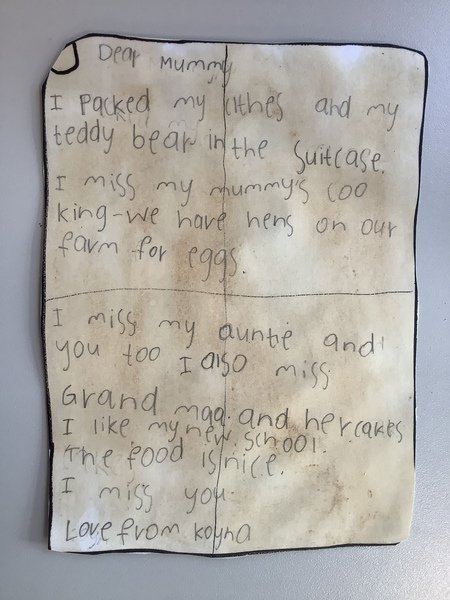 Dear Mummy
I packed my clthes and my
teddy bear in the suitcase.
I miss my mummy's coo
king-we have hens on our
farm for eggs.
I miss my auntie and
you too I also miss
Grand maa. and her cakes
I like my new school.
The food is nice.
I miss you
Love from Koyna